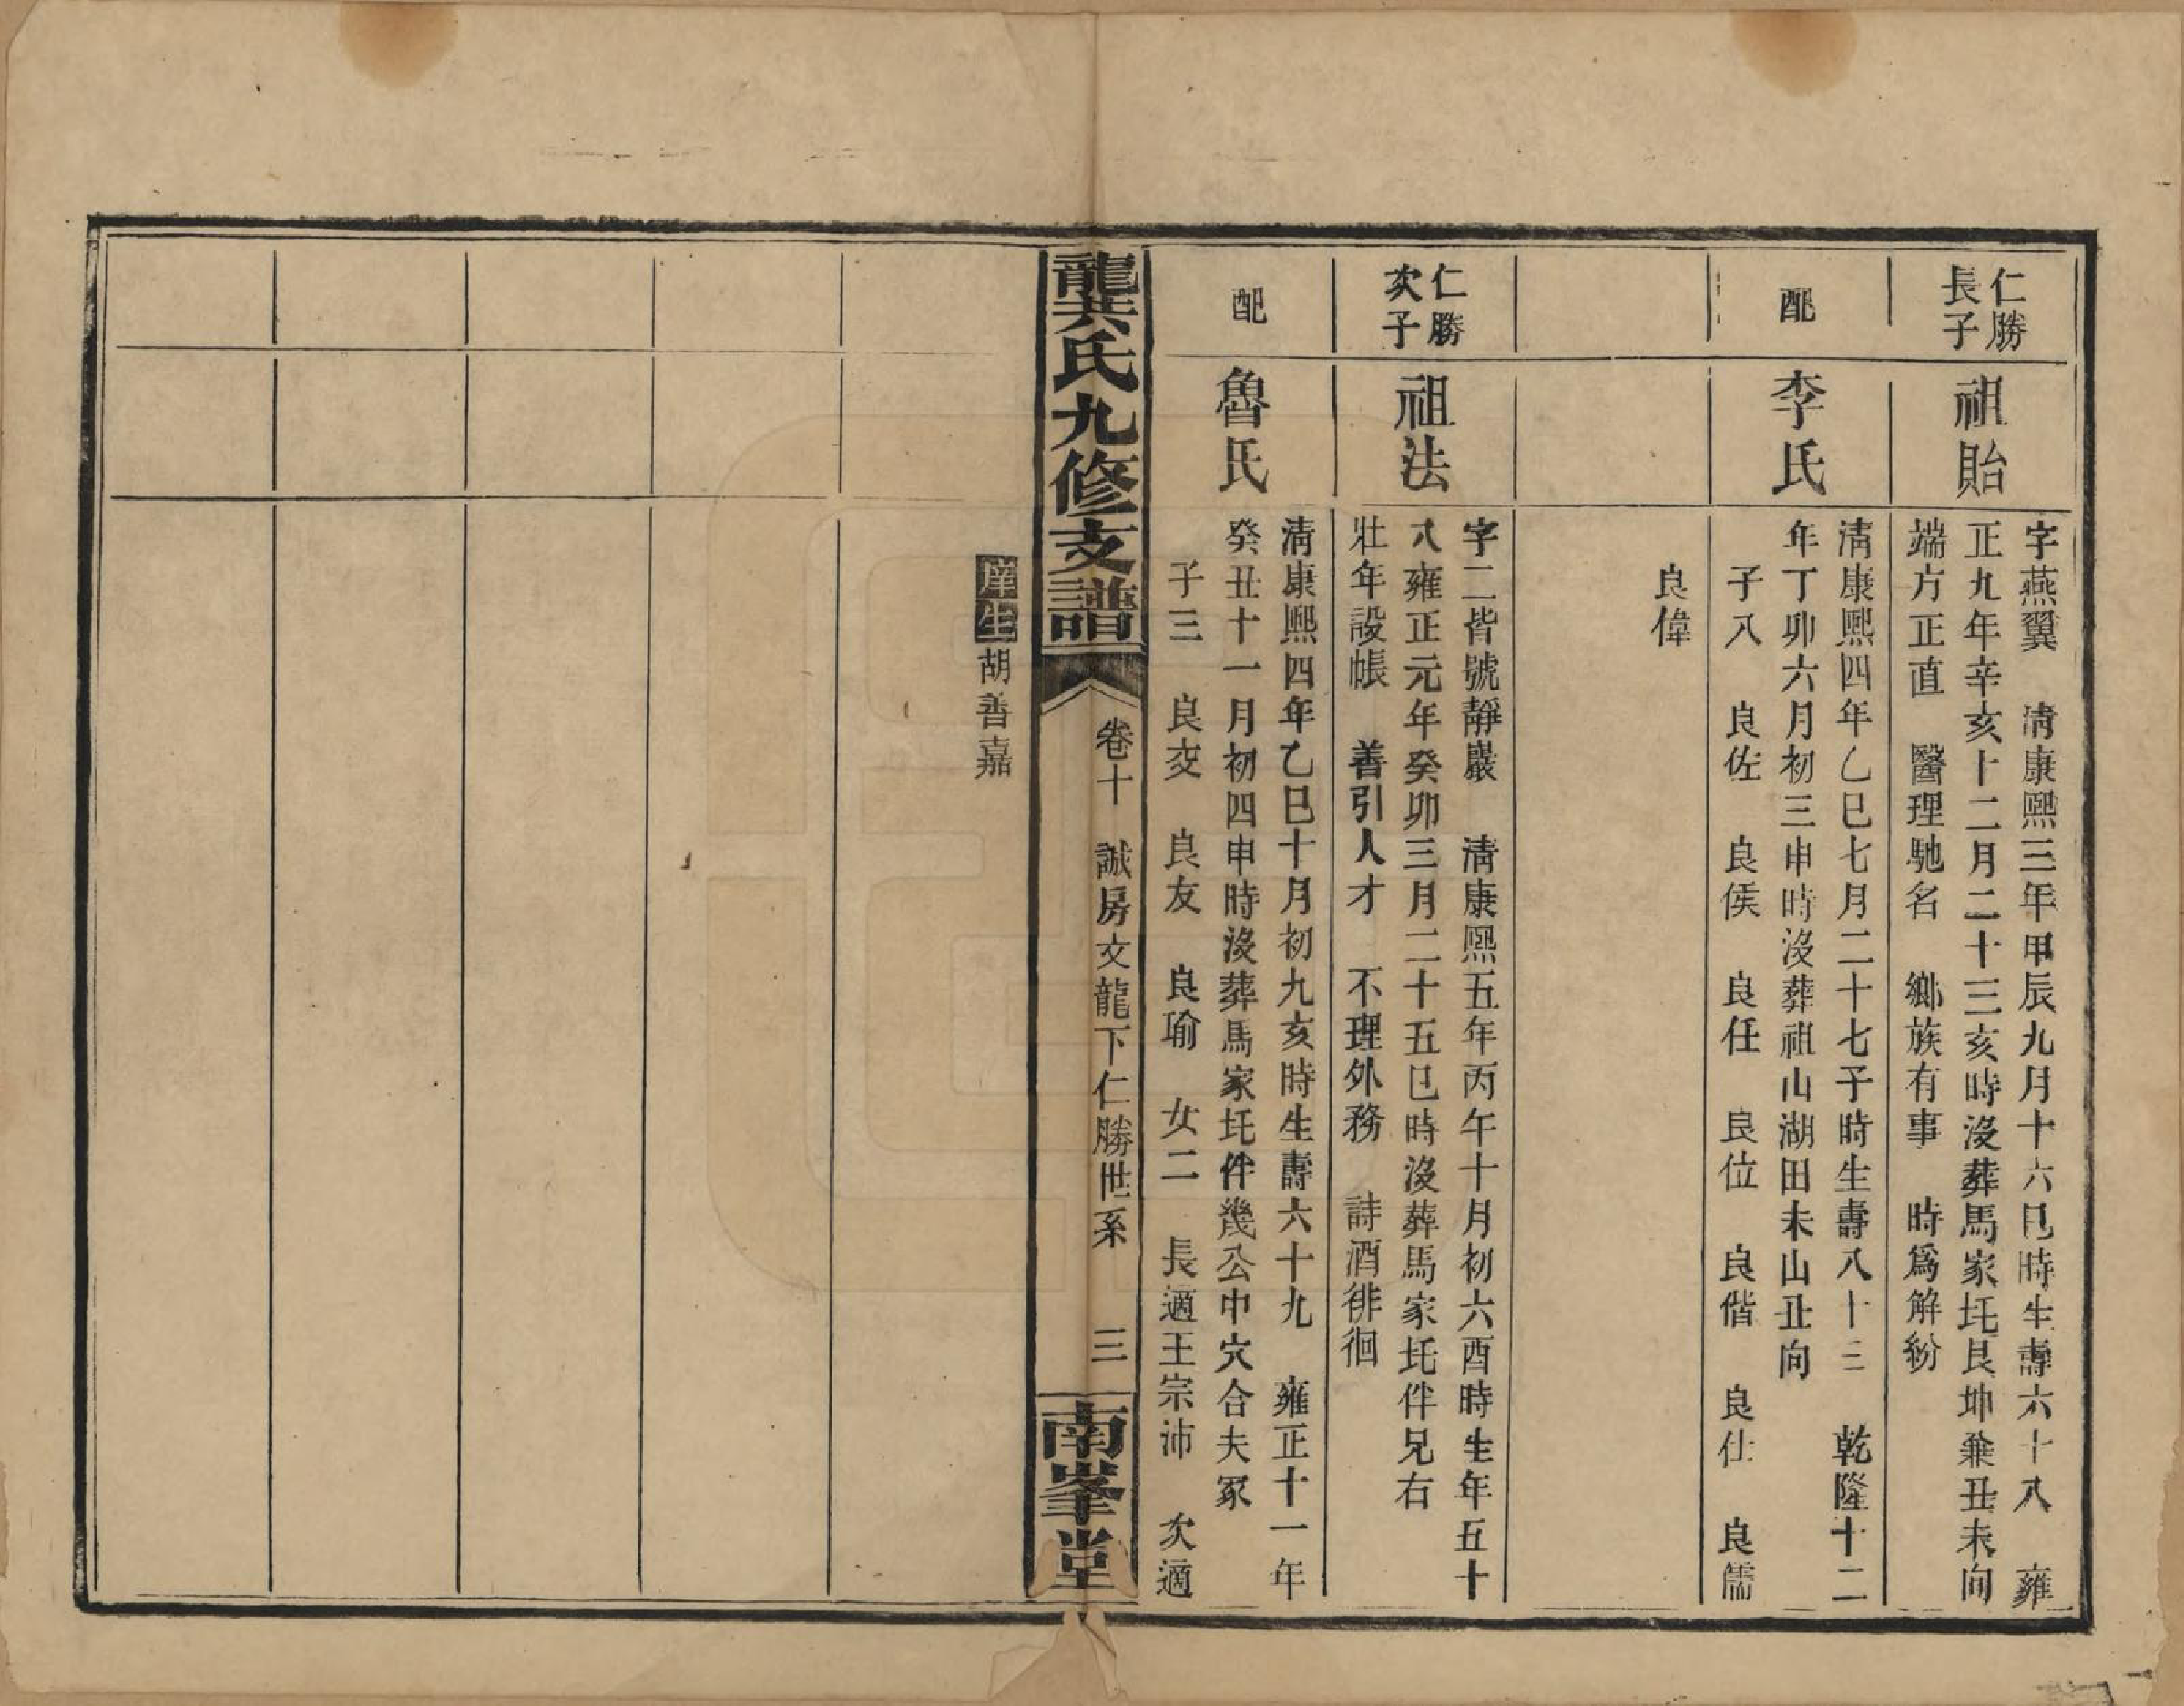 仁勝
長子
祖貽
字燕翼　清康熙三年甲辰九月十六巳時生壽六十八　雍
正九年辛亥十二月二十三亥時沒葬馬家圫艮坤兼丑未向
端方正直　醫理馳名　鄉族有事　時爲解紛
配
李氏
清康熙四年乙巳七月二十七子時生壽八十三　乾隆十二
年丁卯六月初三申時沒葬祖山湖田未山丑向
子八　良佐　良侯　良任　良位　良偕　良仕　良儒
良偉
仁勝
次子
祖法
字二皆號靜巖　清康熙五年丙午十月初六酉時生年五十
八雍正元年癸卯三月二十五巳時沒葬馬家圫伴兄右
壯年設帳　善引人才　不理外務　詩酒徘徊
配
魯氏
清康熙四年乙巳十月初九亥時生壽六十九　雍正十一年
癸丑十一月初四申時沒葬馬家圫件幾公中穴合夫冢
子三　良交　良友　良瑜　女二　長適王宗沛　次適
龍共氏九修支譜
卷十　誠房文龍下仁勝世系　三
南峯堂
庠生胡善嘉